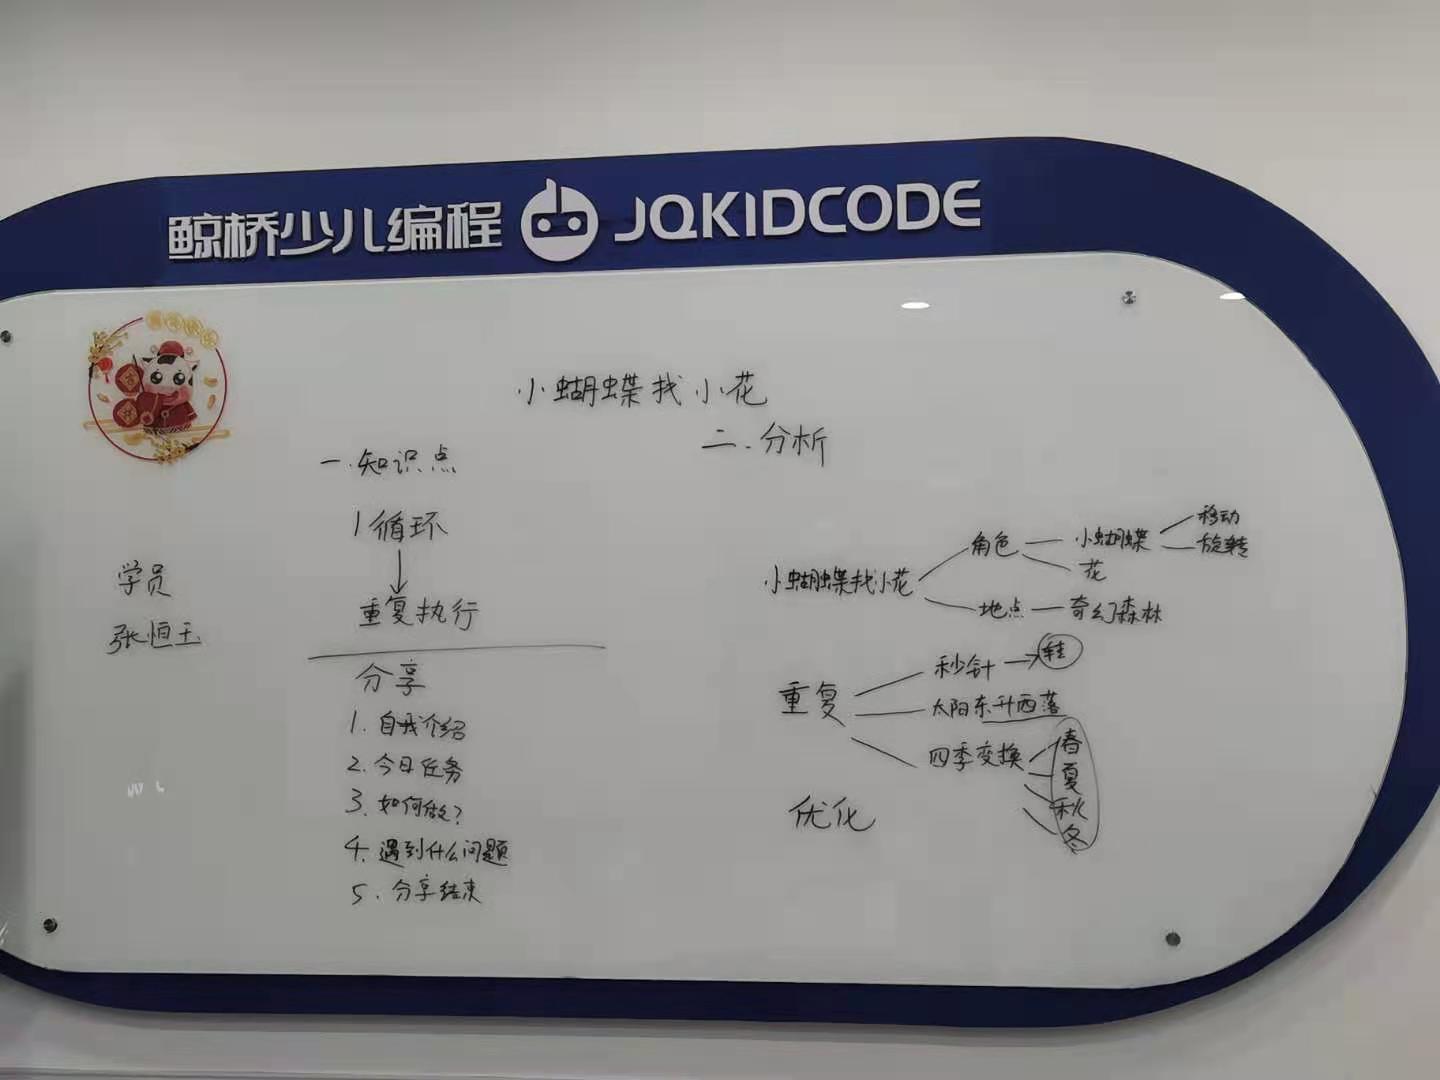 鲸桥少儿编程 JQKIDCODE
小蝴蝶找小花
一.知识点
1循环
重复执行
分享
1. 自我介绍
2. 今日任务
3. 如何做?
4. 遇到什么问题
5. 分享结束
学员
张恒玉
二.分析
小蝴蝶找小花
角色
小蝴蝶
移动
旋转
花
地点
奇幻森林
重复
秒针
转
太阳东升西落
四季变换
春
夏
秋
冬
优化